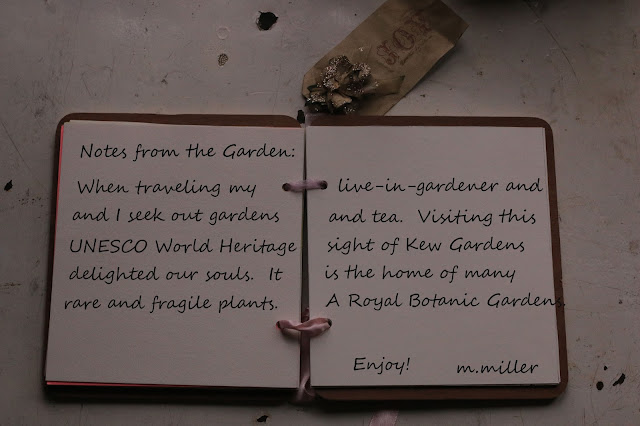 Notes from the Garden:
When traveling my live-in-gardener and
and I seek out gardens and tea. Visiting this
UNESCO World Heritage sight of Kew Gardens
delighted our souls. It is the home of many
rare and fragile plants. A Royal Botanic Gardens.
Enjoy! m.miller